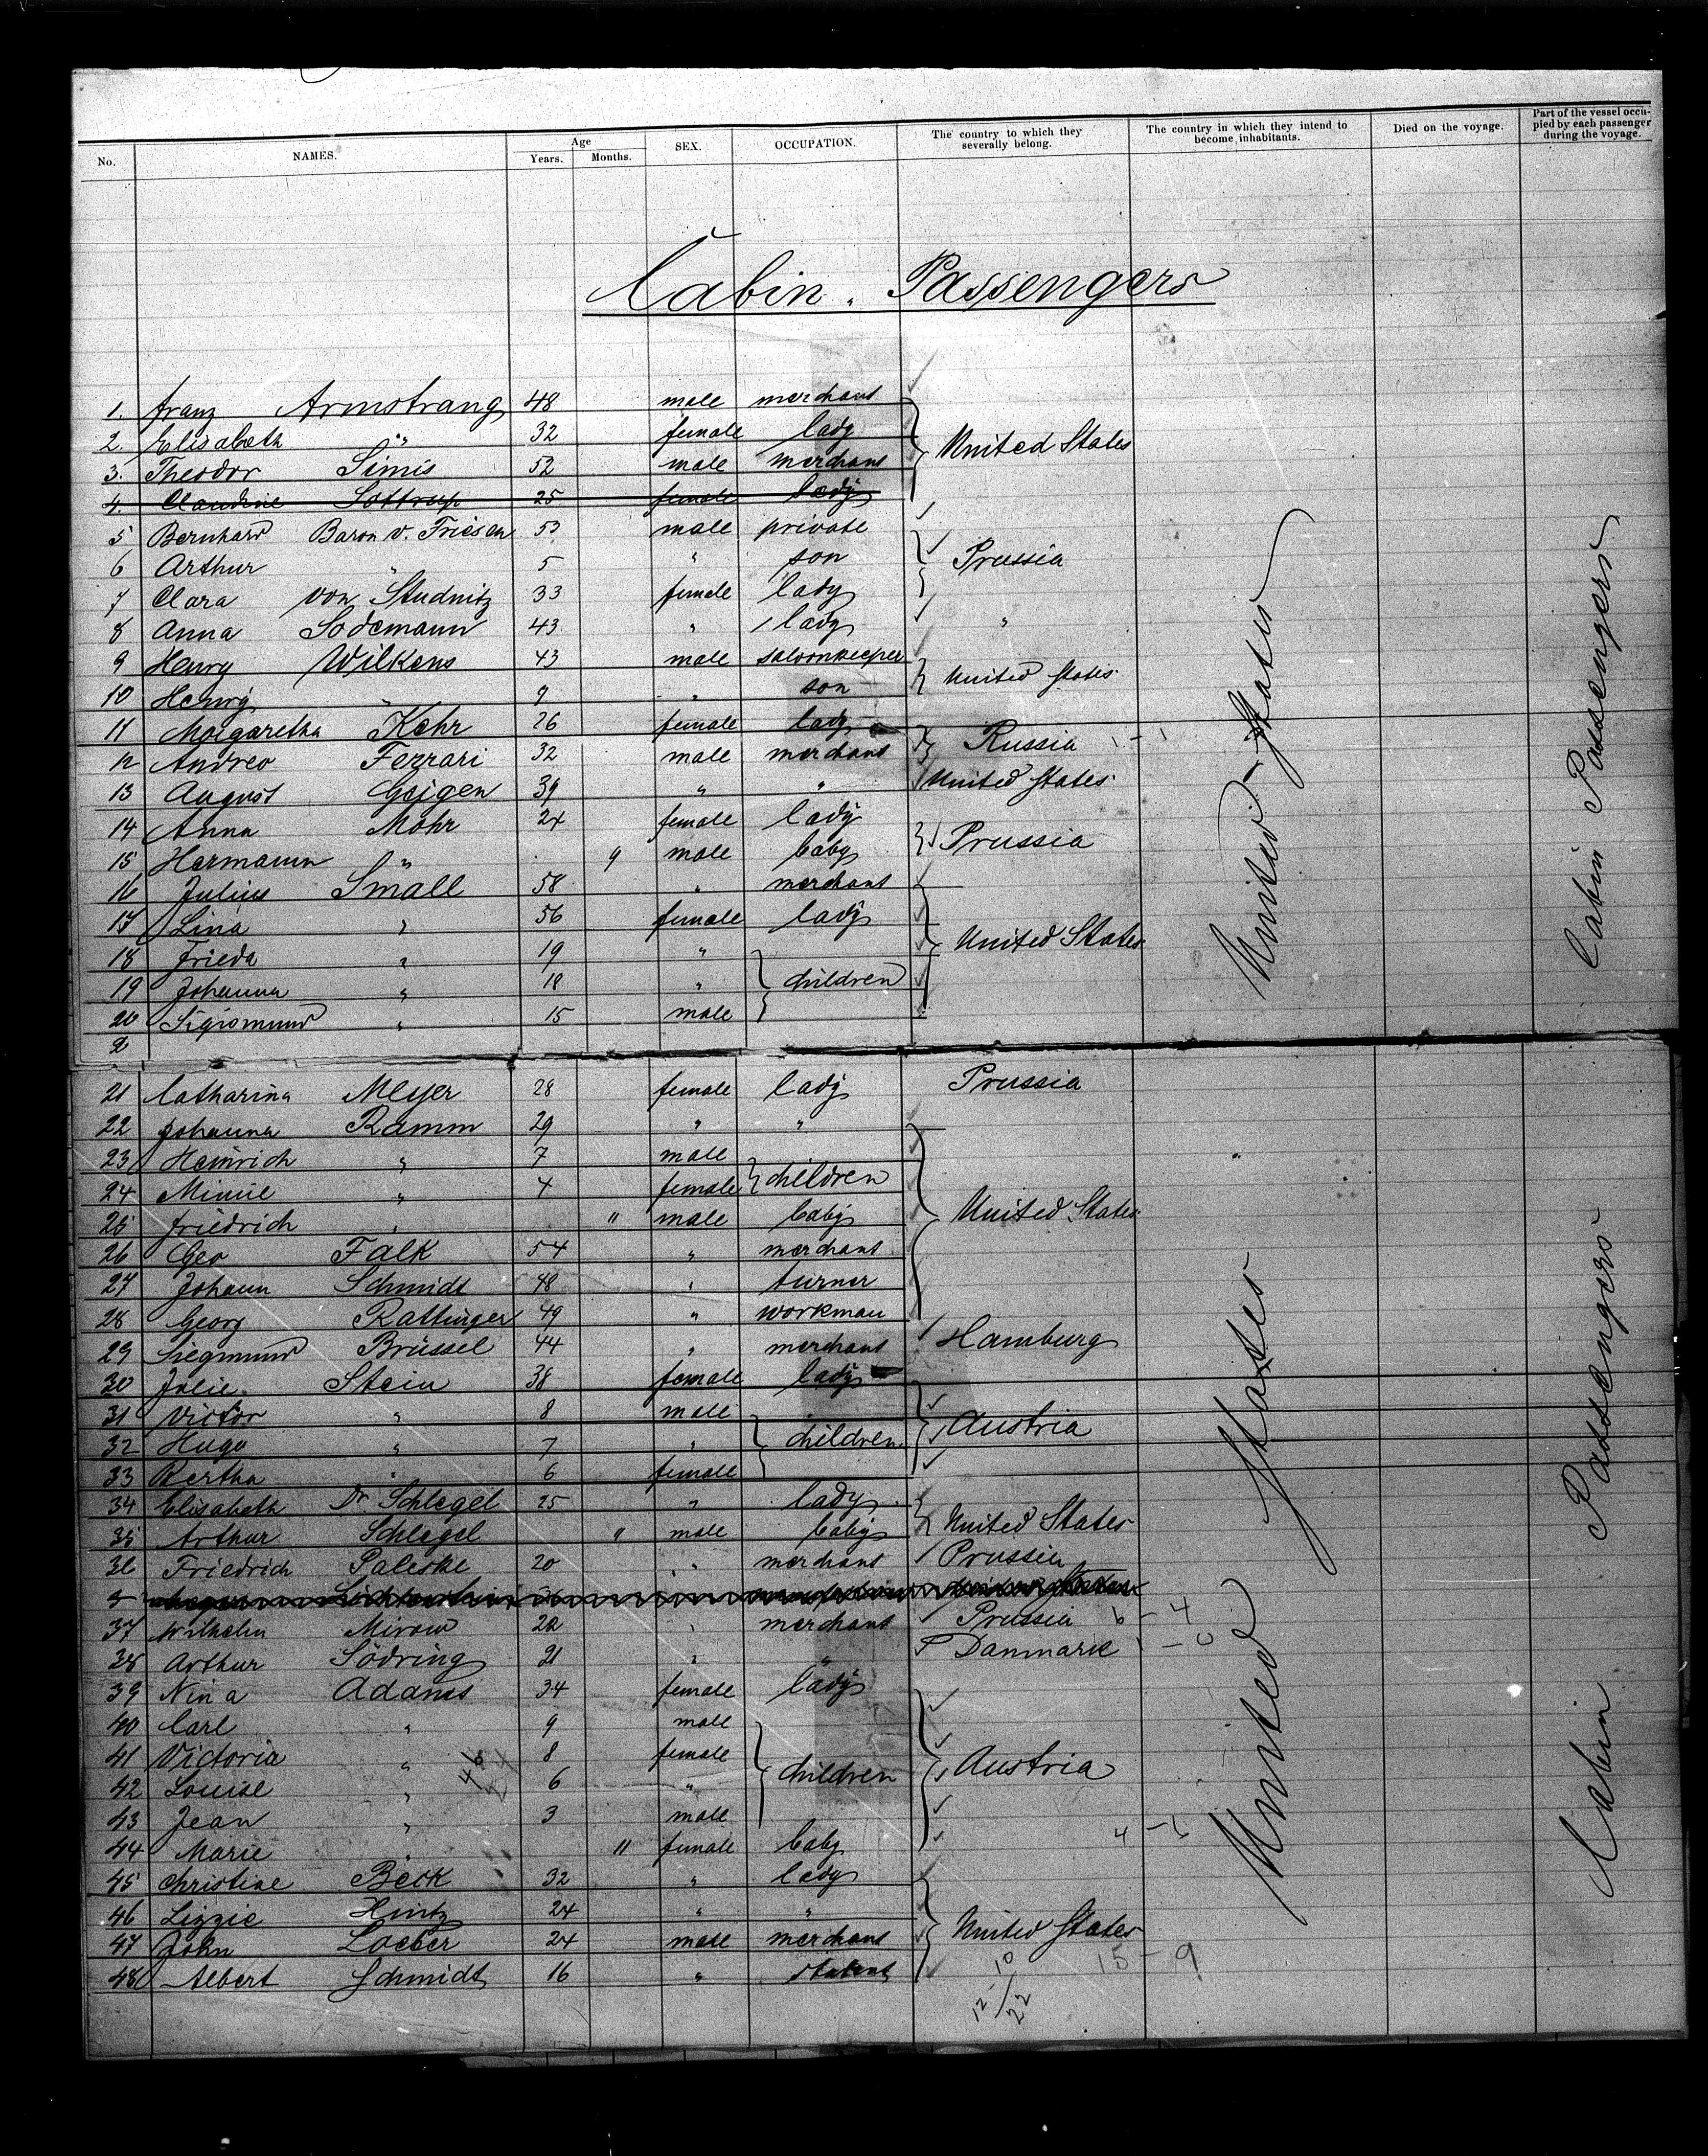 No. NAMES. Age Years. Months. SEX. OCCUPATION. The country to which they severally belong. The country in which they intend to become inhabitants. Died on the voyage. Part of the vessel occupied by each passenger during the voyage.
Cabin Passengers
1. Franz Armstrang 48 male merchant
2. Elisabeth " 32 female lady United States
3. Theodor Simis 52 male merchant
4. Claudine Sottrup 25 female lady
5 Bernhard Baron v. Friesen 53 male private
6 Arthur " 5 " son Prussia
7 Clara von Studnitz 33 female lady
8 Anna Sodemann 43 " lady "
9 Henry Wilkens 43 male saloonkeeper United States
10 Henry " 9 " son
11 Margaretha Kehr 26 female lady Russia 1 - 1
12 Andreo Ferrari 32 male merchant
13 August Geigen 39 " " United States
14 Anna Mohr 24 female lady Prussia
15 Hermann " 9 male baby
16 Julius Small 58 " merchant
17 Lina " 56 female lady
18 Frieda " 19 " United States
19 Johanna " 18 " children
20 Sigismund " 15 male
21 Catharina Meyer 28 female lady Prussia
22 Johanna Ramm 29 " "
23 Heinrich " 7 male
24 Minnie " 4 female children
25 Friedrich " " male baby United States
26 Geo Falk 54 " merchant
27 Johann Schmidt 48 " turner
28 Georg Rattinger 49 " workman
29 Siegmund Brüssel 44 " merchant Hamburg
30 Julie Stein 38 female lady
31 Victor " 8 male
32 Hugo " 7 " children Austria
33 Bertha " 6 female
34 Elisabeth Dr Schlegel 25 " lady
35 Arthur Schlegel " male baby United States
36 Friedrich Paleske 20 " merchant Prussia
37 Wilhelm Mirow 22 " merchant Prussia 6 - 4
38 Arthur Södring 21 " " Danmark 1 - 0
39 Nina Adams 34 female lady
40 Carl " 9 male
41 Victoria " 8 female
42 Louise " 6 " children Austria
43 Jean " 3 male
44 Marie " " female baby 4 - 6
45 Christine Beck 32 " lady
46 Lizzie Hintz 24 " "
47 John Loeber 24 male merchant United States
48 Albert Schmidt 16 " student
10 15 - 9
12/22
United States
United States
Cabin Passengers
Cabin Passengers